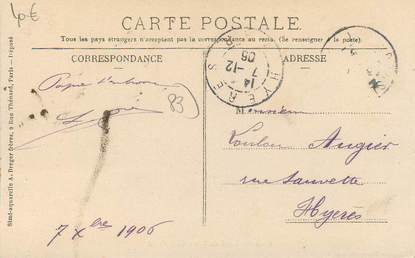 40€
CARTE POSTALE
Tous les pays étrangers n'acceptent pas la correspondance au recto. (Se renseigner à la poste).
CORRESPONDANCE
ADRESSE
HYERES
14
7 -12
05
83
Monsieur
Augier
rue Sauvette
Hyères
7 Xbre 1906
Simi-aquarelle A. Breger frères, 9 Rue Thénard, Paris - Déposé